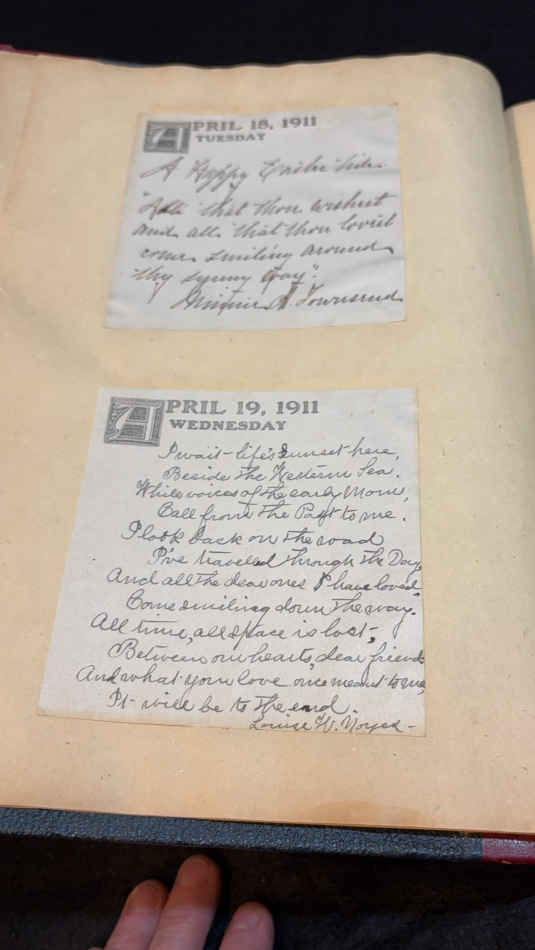 APRIL 18, 1911
TUESDAY
A Happy Easter tide.
"All that thou wishest
and all that thou lovest
come smiling around
thy sunny way".
Minnie A. Townsend
APRIL 19, 1911
WEDNESDAY
I wait life's sunset here,
Beside the Western Sea.
While voices of the early Morn,
Call from the Past to me.
I look back on the road
I've travelled through the Day,
And all the dear ones I have loved,
Come smiling down the way.
All time, all space is lost,
Between our hearts, dear friend
And what your love once meant to me,
It will be to the end.
Louise W. Noyes